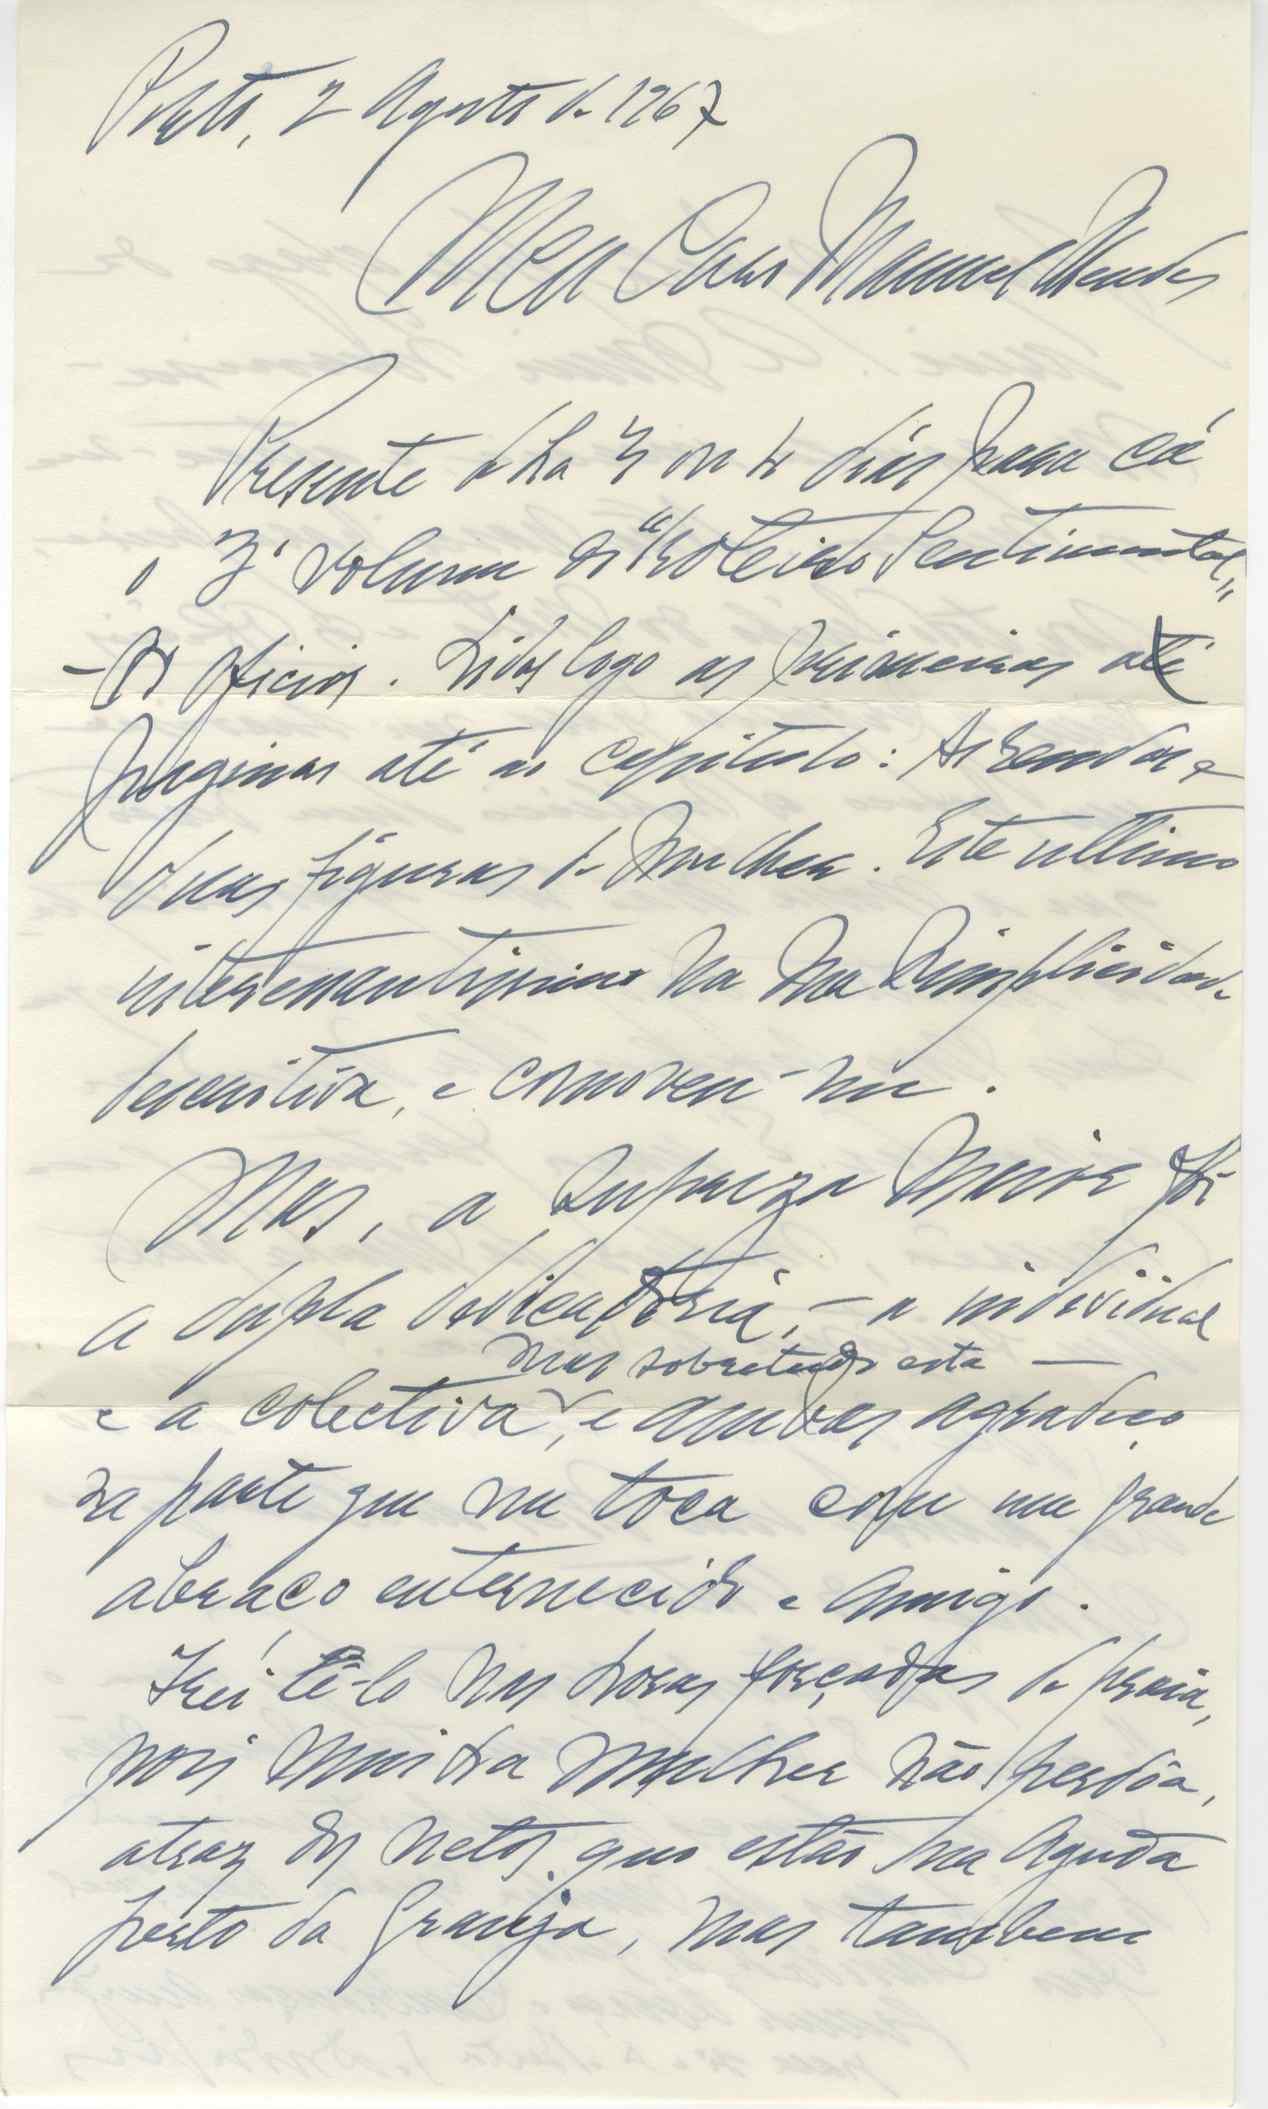 Porto, 2 Agosto de 1967
Meu Caro Manuel Mendes
Presente de ha 3 ou 4 dias para cá
o 3º volume do "Roteiro Sentimental"
- Os Oficios. Lidas logo as primeiras até
paginas até ao capitulo: As Rendas e
duas figuras de Mulher. Este ultimo
interessantissimo na sua Simplicidade
descritiva, e comoveu-me.
Mas, a surpreza maior foi
a dupla dedicatória, - a individual
mas sobretudo esta —
e a colectiva, e ambas agradeço
na parte que me toca com um grande
abraço enternecido e amigo.
Irei lê-lo nas horas forçadas da praia,
pois minha mulher não perdôa,
atraz dos netos que estão na Aguda
perto da Granja, mas tambem